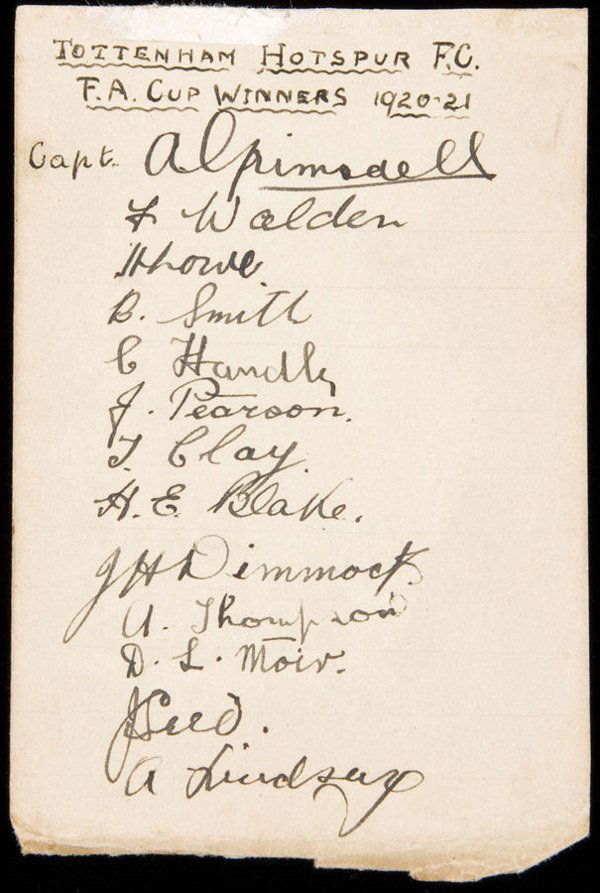 TOTTENHAM HOTSPUR F.C.
F.A. CUP WINNERS 1920-21
Capt. A Grimsdell
F Walden
H Lowe
B. Smith
C Handly
J. Pearson.
T Clay
H. E. Blake.
J H Dimmock
A. Thompson
D. L. Moir.
J Seed.
A Lindsay